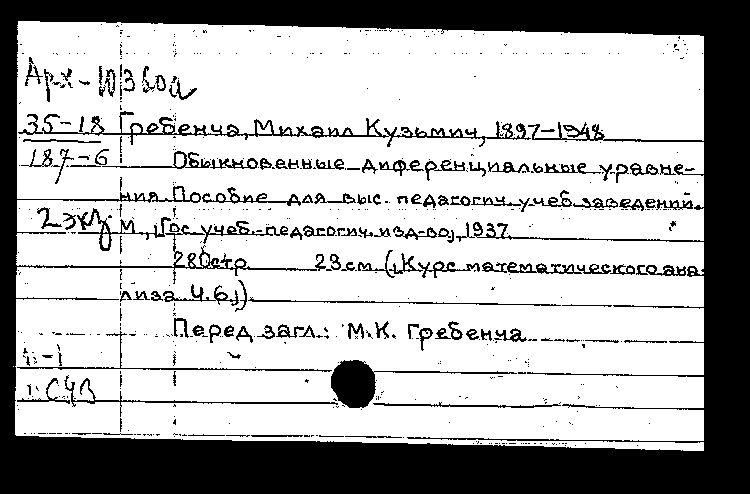 35-18 Гребенча, Михаил Кузьмич, 1897-1948
187-6 Обыкновенные диференциальные уравне-
ния. Пособие для выс. педагогич. учеб. заведений.
2 экз. М., [Гос. учеб.-педагогич. изд-во], 1937.
280 стр. 23 см. ([Курс математического ана-
лиза. Ч.6.])
Перед загл.: М.К. Гребенча